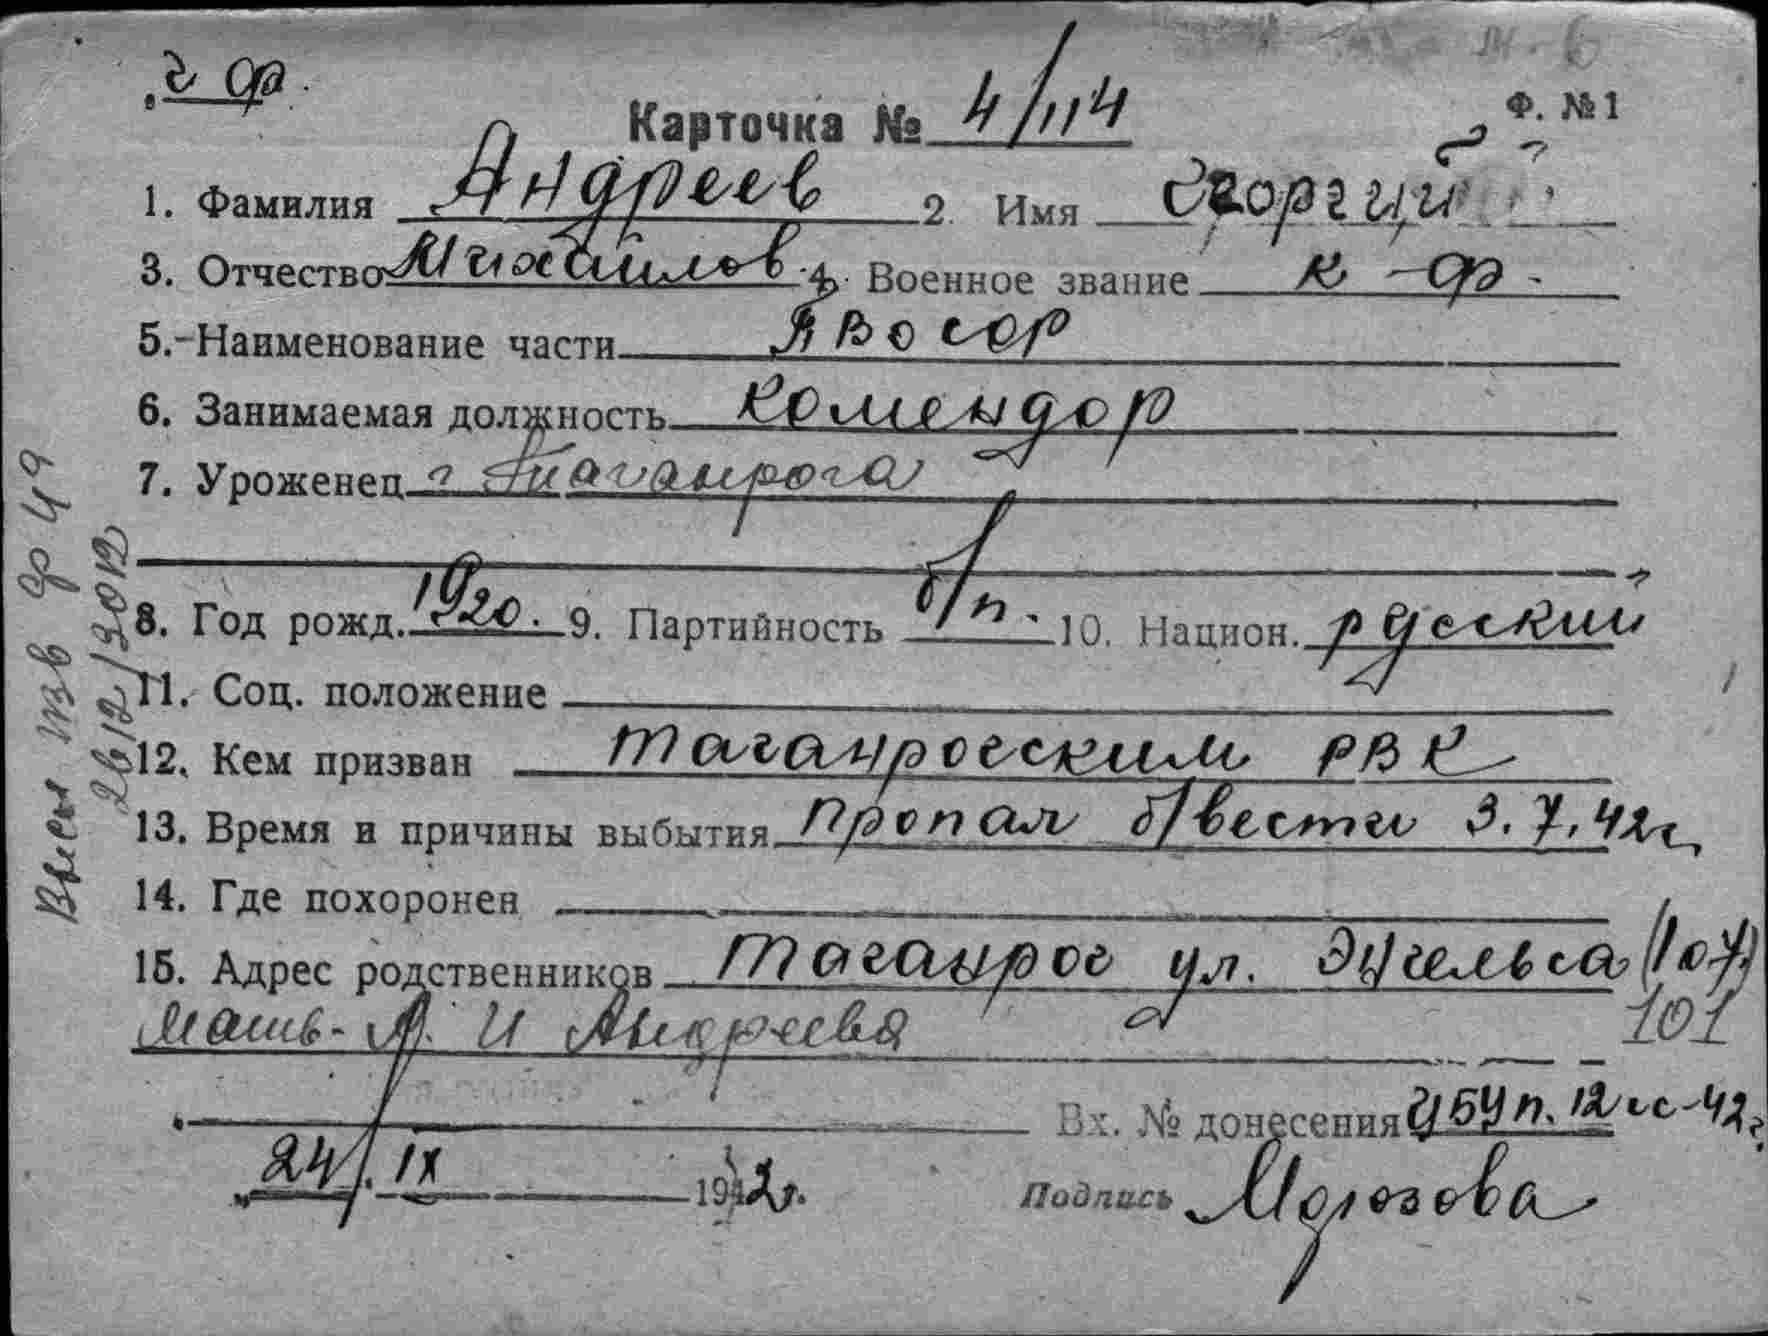 Карточка № 4/114
Ф. №1
1. Фамилия Андреев 2. Имя Георгий
3. Отчество Михайлов. 4. Военное звание к-ф.
5. Наименование части
6. Занимаемая должность комендор
7. Уроженец г Таганрога
8. Год рожд. 1920. 9. Партийность б/п. 10. Национ. русский
11. Соц. положение
12. Кем призван Таганрогским РВК
13. Время и причины выбытия пропал б/вести 3.7.42г.
14. Где похоронен
15. Адрес родственников Таганрог ул. Энгельса (107)
101
мать- А. И Андреева
Вх. № донесения
24/. IX 1942г.
Подпись Морозова